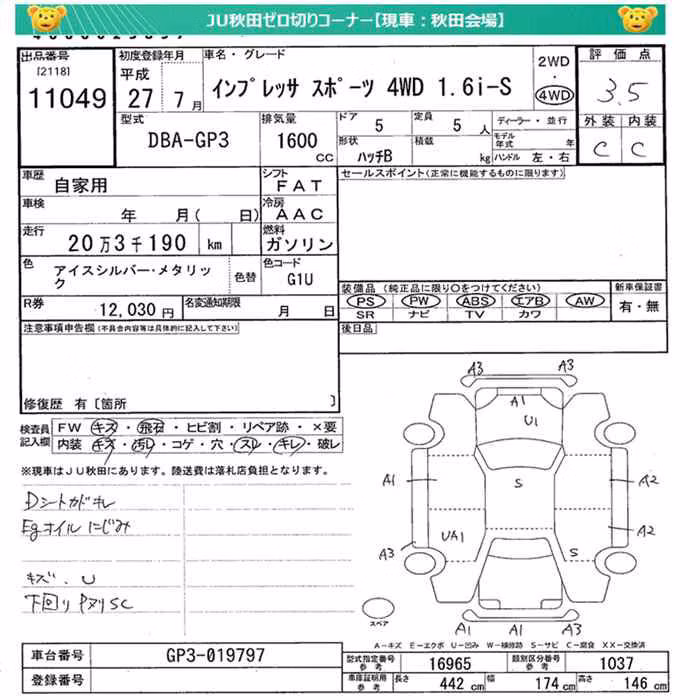 JU秋田ゼロ切りコーナー【現車：秋田会場】
出品番号
[2118]
11049
初度登録年月
平成
27 7月
車名・グレード
インプレッサ スポーツ 4WD 1.6i-S
2WD
・
4WD
評価点
3.5
外装 内装
C C
型式
DBA-GP3
排気量
1600
cc
ドア 5
定員 5 人
ディーラー・並行
モデル年式 年
形状
ハッチB
積載
kg
ハンドル 左・右
車歴
自家用
シフト
FAT
セールスポイント(正常に機能するものに限ります)
車検
年 月( 日)
冷房
AAC
走行
20万3千190 km
燃料
ガソリン
色
アイスシルバー・メタリック
色替
色コード
G1U
R券
12,030円
名変通知期限
月 日
装備品(純正品に限り○をつけてください)
PS PW ABS エアB AW
SR ナビ TV カワ
新車保証書
有・無
後日品
注意事項申告欄(不具合内容等は具体的に記入して下さい)
修復歴 有〔箇所 〕
検査員記入欄
FW キズ・飛石・ヒビ割・リペア跡・×要
内装 キズ・汚レ・コゲ・穴・スレ・キレ・破レ
※現車はJU秋田にあります。陸送費は落札店負担となります。
Dシートカドキレ
Egオイルにじみ
キズ.U
下回りPヌリSC
A3 A3
A1
U1
A1 A2
S
UA1 A2
A3 S
スペア
A1 A1 A3
A－キズ E－エクボ U－凹み W－補修跡 S－サビ C－腐食 XX－交換済
車台番号
GP3-019797
登録番号
型式指定番号
参考
16965
類別区分番号
参考
1037
車庫証明用
参考
長さ 442 cm
幅 174 cm
高さ 146 cm